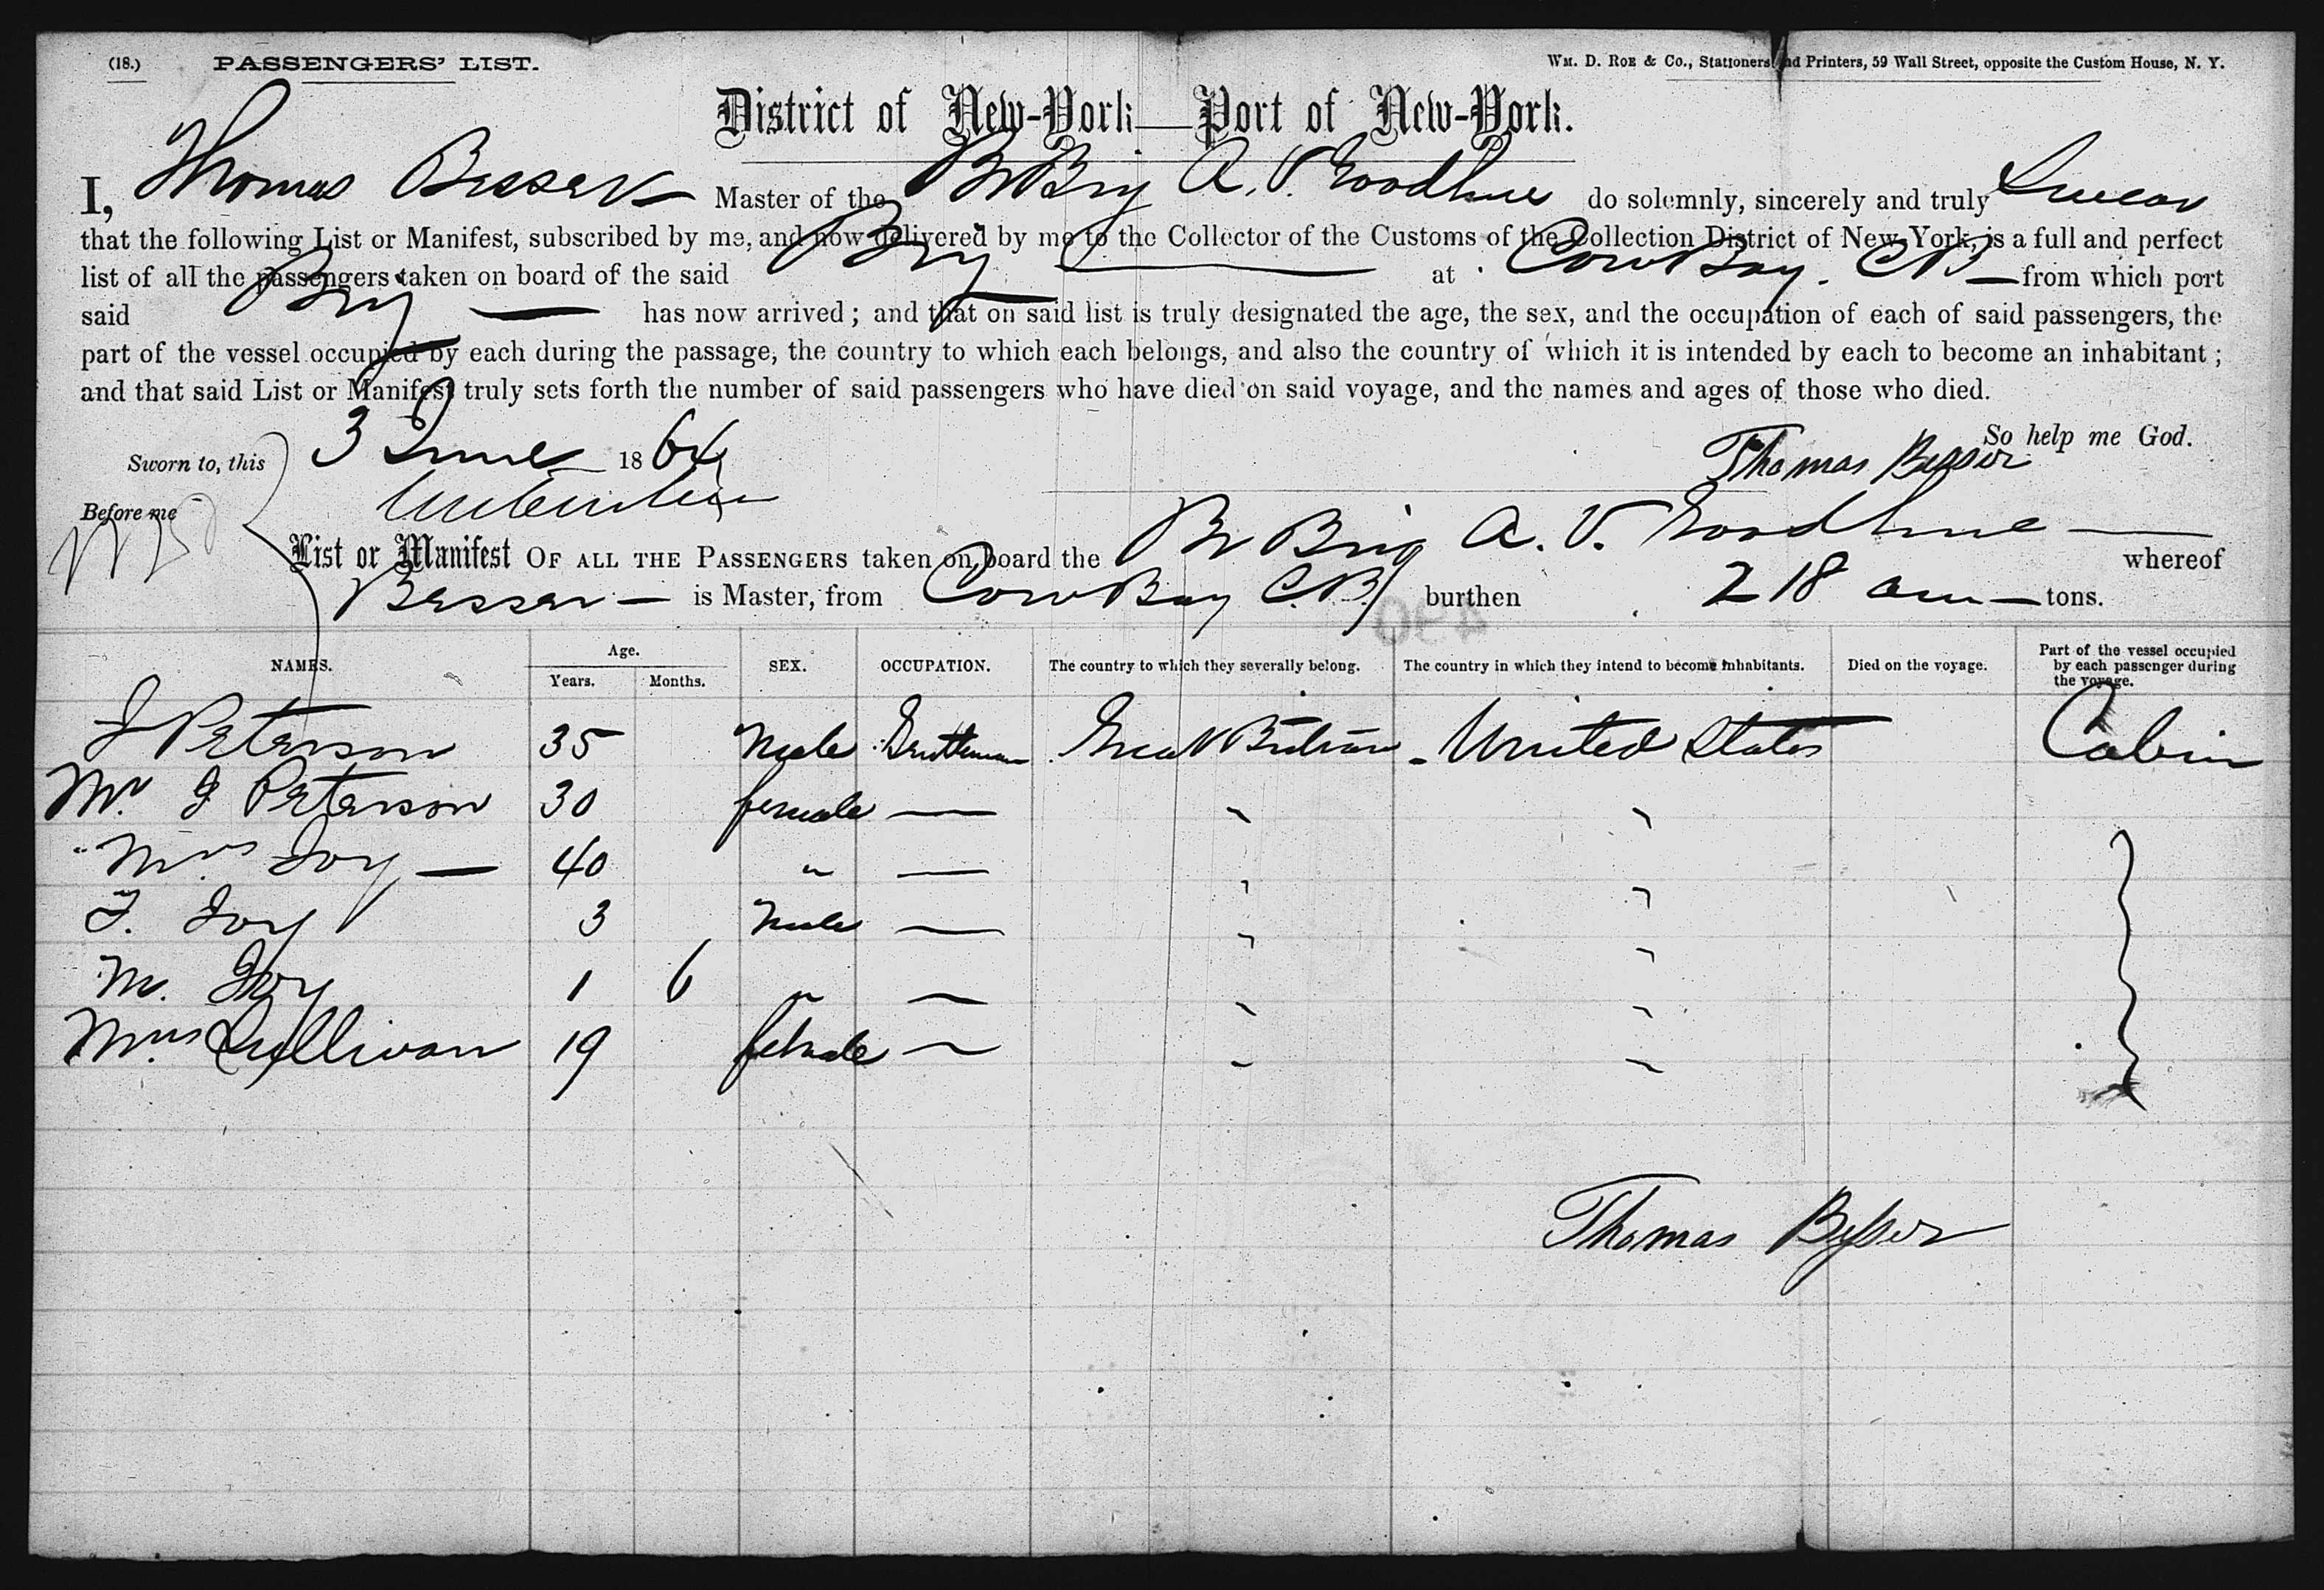 (18.) PASSENGERS' LIST. Wm. D. Roe & Co., Stationers and Printers, 59 Wall Street, opposite the Custom House, N. Y.
District of New-York—Port of New-York.
I, Thomas Besser Master of the Br Brig A. V. Goodhue do solemnly, sincerely and truly Swear
that the following List or Manifest, subscribed by me, and now delivered by me to the Collector of the Customs of the Collection District of New-York, is a full and perfect
list of all the passengers taken on board of the said Brig — at Cow Bay. CB — from which port
said Brig — has now arrived; and that on said list is truly designated the age, the sex, and the occupation of each of said passengers, the
part of the vessel occupied by each during the passage, the country to which each belongs, and also the country of which it is intended by each to become an inhabitant;
and that said List or Manifest truly sets forth the number of said passengers who have died on said voyage, and the names and ages of those who died.
So help me God.
Sworn to, this 3 June 1864 Thomas Besser
Before me
List or Manifest OF ALL THE PASSENGERS taken on board the Br Brig A. V. Goodhue — whereof
Besser — is Master, from Cow Bay C.B/ burthen 218 — tons.
NAMES. Age. Years. Months. SEX. OCCUPATION. The country to which they severally belong. The country in which they intend to become inhabitants. Died on the voyage. Part of the vessel occupied by each passenger during the voyage.
J Peterson 35 Male Gentleman Great Britain - United States Cabin
Mrs J Peterson 30 female — " "
" Mrs Joy — 40 " — " "
T. Joy 3 Male — " "
M. Joy 1 6 " — " "
Mrs Sullivan 19 female — " "
Thomas Besser